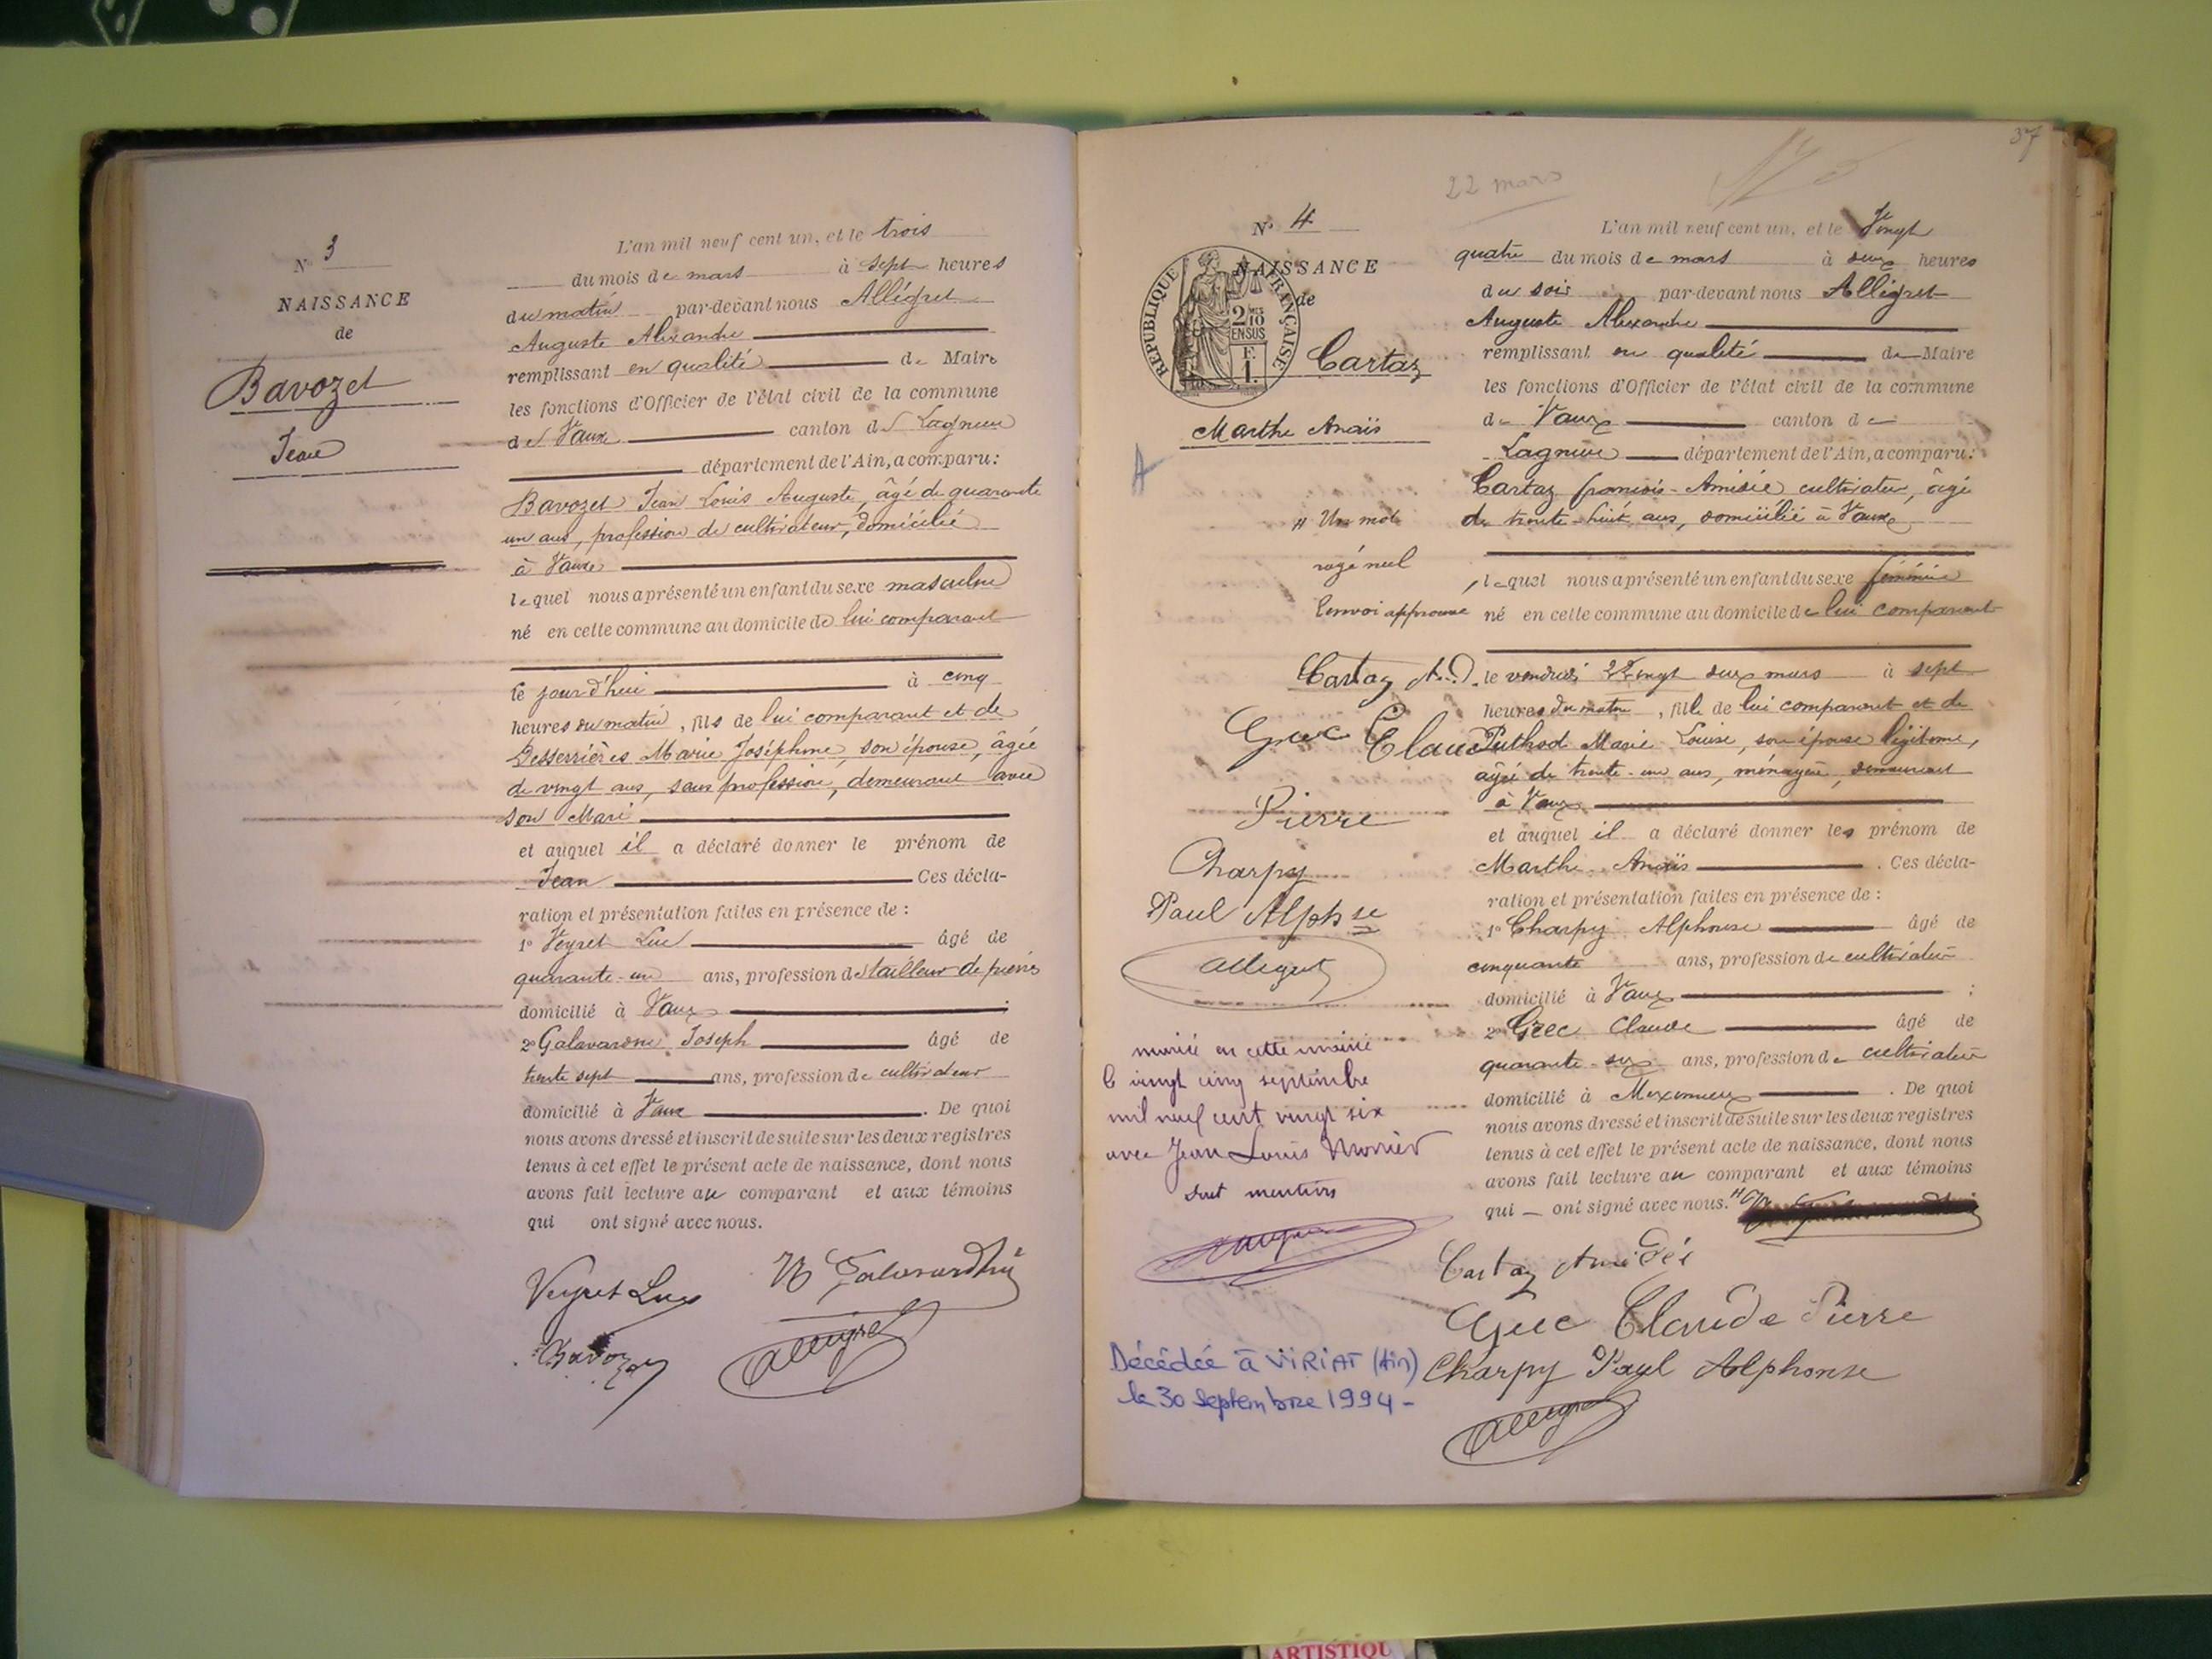 N° 3
NAISSANCE
de
Bavozet
Jean
L'an mil neuf cent un, et le trois
du mois de mars à sept heures
du matin par-devant nous Allégret
Auguste Alexandre
remplissant en qualité de Maire
les fonctions d'Officier de l'état civil de la commune
de Vaux canton de Lagnieu
département de l'Ain, a comparu:
Bavozet Jean Louis Auguste, âgé de quarante
un ans, profession de cultivateur, domicilié
à Vaux
lequel nous a présenté un enfant du sexe masculin
né en cette commune au domicile de lui comparant
le jourd'hui à cinq
heures du matin, fils de lui comparant et de
Desserrières Marie Joséphine, son épouse, âgée
de vingt ans, sans profession, demeurant avec
son Mari
et auquel il a déclaré donner le prénom de
Jean Ces décla-
ration et présentation faites en présence de :
1° Veyret Luc âgé de
quarante-un ans, profession de tailleur de pierres
domicilié à Vaux ;
2° Galavardin Joseph âgé de
trente sept ans, profession de cultivateur
domicilié à Vaux . De quoi
nous avons dressé et inscrit de suite sur les deux registres
tenus à cet effet le présent acte de naissance, dont nous
avons fait lecture au comparant et aux témoins
qui ont signé avec nous.
Veyret Luc Galavardin
Bavozet Allégret
37
22 mars
N° 4
NAISSANCE
de
RÉPUBLIQUE FRANÇAISE
2/10 EN SUS
F. 1.
Cartaz
Marthe Anaïs
A
L'an mil neuf cent un, et le Vingt
quatre du mois de mars à deux heures
du soir par-devant nous Allégret
Auguste Alexandre
remplissant en qualité de Maire
les fonctions d'Officier de l'état civil de la commune
de Vaux canton de
Lagnieu département de l'Ain, a comparu:
Cartaz françois-Amédée cultivateur, âgé
de trente-huit ans, domicilié à Vaux
lequel nous a présenté un enfant du sexe féminin
né en cette commune au domicile de lui comparant
le vendredi vingt deux mars à sept
heures du matin, fille de lui comparant et de
Puthod Marie-Louise, son épouse légitime,
âgée de trente-un ans, ménagère, demeurant
à Vaux
et auquel il a déclaré donner les prénom de
Marthe Anaïs . Ces décla-
ration et présentation faites en présence de :
1° Charpy Alphonse âgé de
cinquante ans, profession de cultivateur
domicilié à Vaux ;
2° Grec Claude âgé de
quarante-six ans, profession de cultivateur
domicilié à Meximieux . De quoi
nous avons dressé et inscrit de suite sur les deux registres
tenus à cet effet le présent acte de naissance, dont nous
avons fait lecture au comparant et aux témoins
qui ont signé avec nous.
Cartaz Amédée
Grec Claude Pierre
Charpy Paul Alphonse
Allégret
Un mot
rayé nul
Renvoi approuvé
Cartaz A.D.
Grec Claude
Pierre
Charpy
Paul Alphse
Allégret
mariée en cette mairie
le vingt cinq septembre
mil neuf cent vingt six
avec Jean Louis Monier
dont mention
Décédée à VIRIAT (Ain)
le 30 septembre 1994 -
ARTISTIQU